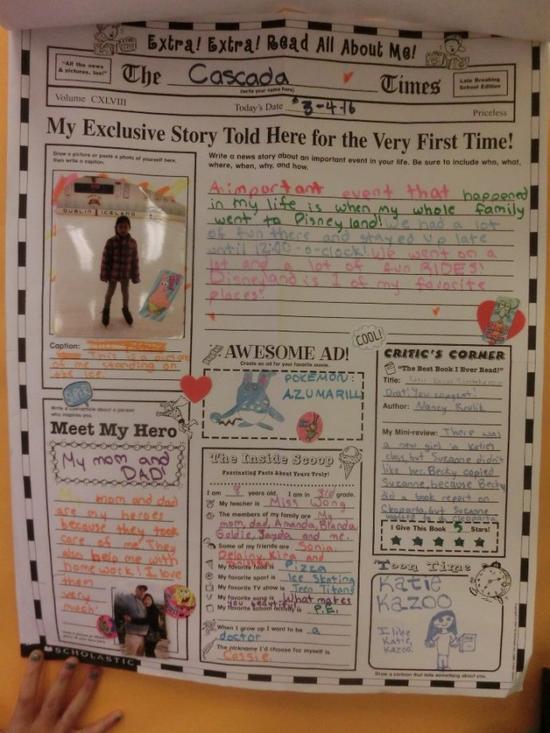 Extra! Extra! Read All About Me!
"All the news & pictures, too!"
The Cascada Times
(write your name here)
Late Breaking School Edition
Volume CXLVIII
Today's Date 3-4-16
Priceless
My Exclusive Story Told Here for the Very First Time!
Draw a picture or paste a photo of yourself here, then write a caption.
DUBLIN ICELAND
Caption:
This is a picture
of me standing on
the ice.
Write a news story about an important event in your life. Be sure to include who, what,
where, when, why, and how.
A important event that happened
in my life is when my whole family
went to Disney land! We had a lot
of fun there and stayed up late
until 12:00-o-clock! We went on a
lot and a lot of fun RIDES!
Disneyland is 1 of my favorite
places!
COOL!
Write a column about a person who inspires you.
Meet My Hero
My mom and
DAD!
mom and dad
are my heroes
because they took
care of me! They
also help me with
homework! I love
them
very
much!
AWESOME AD!
Create an ad for your favorite movie.
POKEMON:
AZUMARILL
The Inside Scoop
Fascinating Facts About Yours Truly!
I am years old. I am in 3rd grade.
My teacher is Miss Wong
The members of my family are My
mom, dad, Amanda,
Goldie, Jayda and me.
Some of my friends are Sonja,
and
My favorite food is Pizza
My favorite sport is Ice Skating
My favorite TV show is Teen Titans
My favorite song is What makes
you beautiful
My favorite school activity is P.E.
When I grow up I want to be a
doctor
The nickname I'd choose for myself is
Cassie.
CRITIC'S CORNER
"The Best Book I Ever Read!"
Title:
Drat! You
Author: Nancy Krulik
My Mini-review: There was
a new girl in Katie's
class, but Suzanne didn't
like her. Becky copied
Suzanne, because Becky
did a book report on
but Suzanne
I Give This Book 5 Stars!
Toon Time
Katie
Kazoo
I like
Katie
Kazoo.
Draw a cartoon that says something about you.
SCHOLASTIC